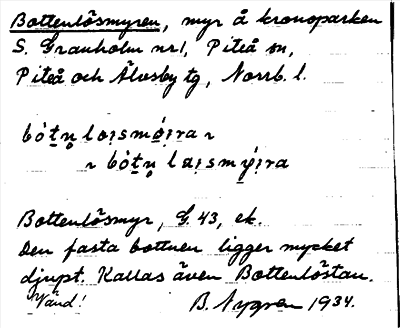 Bottenlösmyren, myr å kronoparken
S. Granholm nr 1, Piteå sn,
Piteå och Älvsby tg, Norrb. l.
bòtn̥ loi̯smó̤i̯ra ~
~ bòtn̥ lai̯smý̤i̯ra
Bottenlösmyr, G. 43, ek.
Den fasta bottnen ligger mycket
djupt. Kallas även Bottenlöstan.
Vänd! B. Nygren 1934.